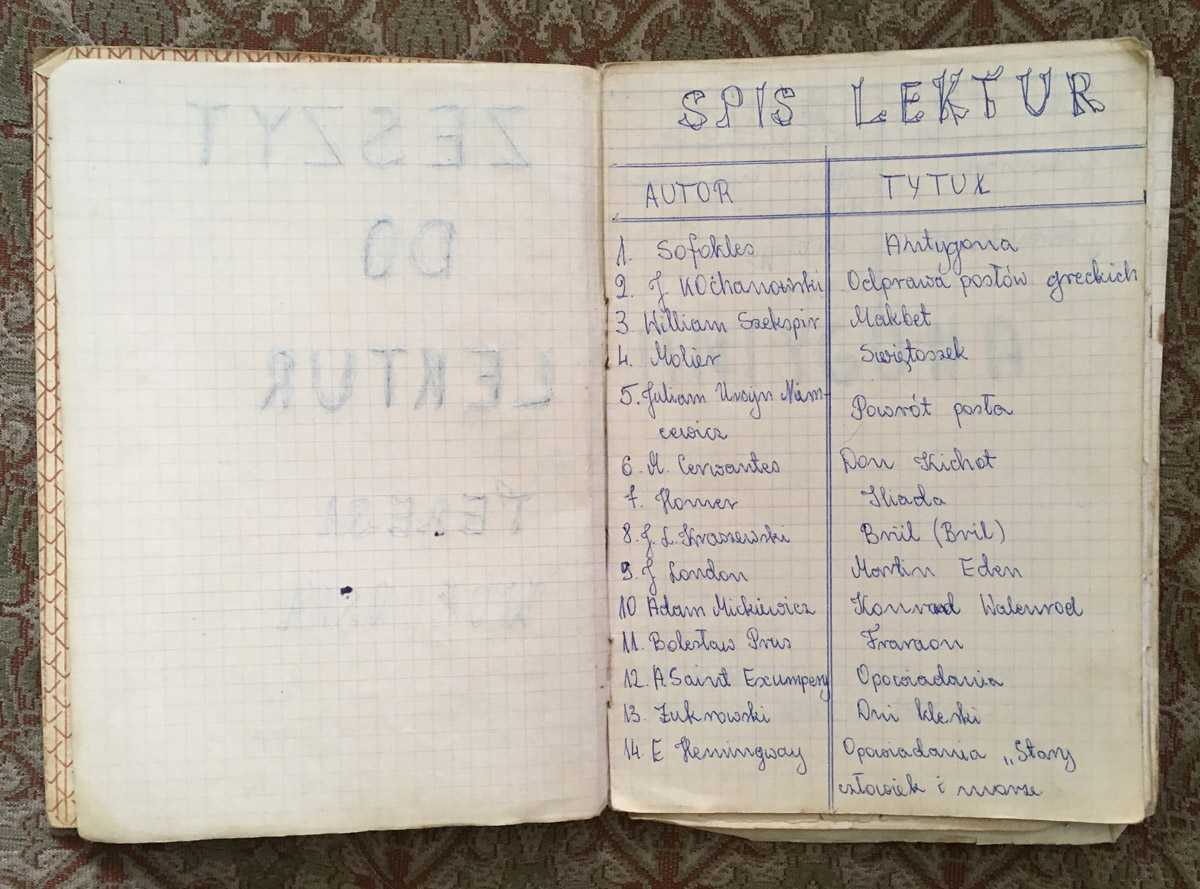 ZESZYT
DO
LEKTUR
TERESA
SPIS LEKTUR
AUTOR TYTUŁ
1. Sofokles Antygona
2. J KOchanowski Odprawa posłów greckich
3. William Szekspir Makbet
4. Molier Swiętoszek
5. Juliam Ursyn Niem-
cewicz Powrót posła
6. M. Cerwantes Don Kichot
7. Homer Iliada
8. J. I. Kraszewski Brüil (Bril)
9. J London Martin Eden
10 Adam Mickiewicz Konrad Walenrod
11. Bolesław Prus Fraraon
12. A Saint Exumpery Opowiadania
13. Żukrowski Dni klęski
14. E Hemingway Opowiadania „Stary
człowiek i morze